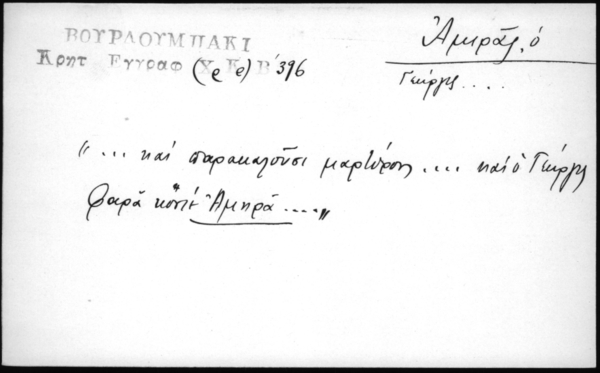 ΒΟΥΡΔΟΥΜΠΑΚΙ
Κρητ Εγγραφ (Χ Ε Ε) Β' 396
Ἀμιρᾶς, ὁ
Γεώργης....
"... καί παρακαλοῦσι μαρτύρους .... καί ὁ Γεώργης
Φαρᾶ Ἀμηρᾶ ....."